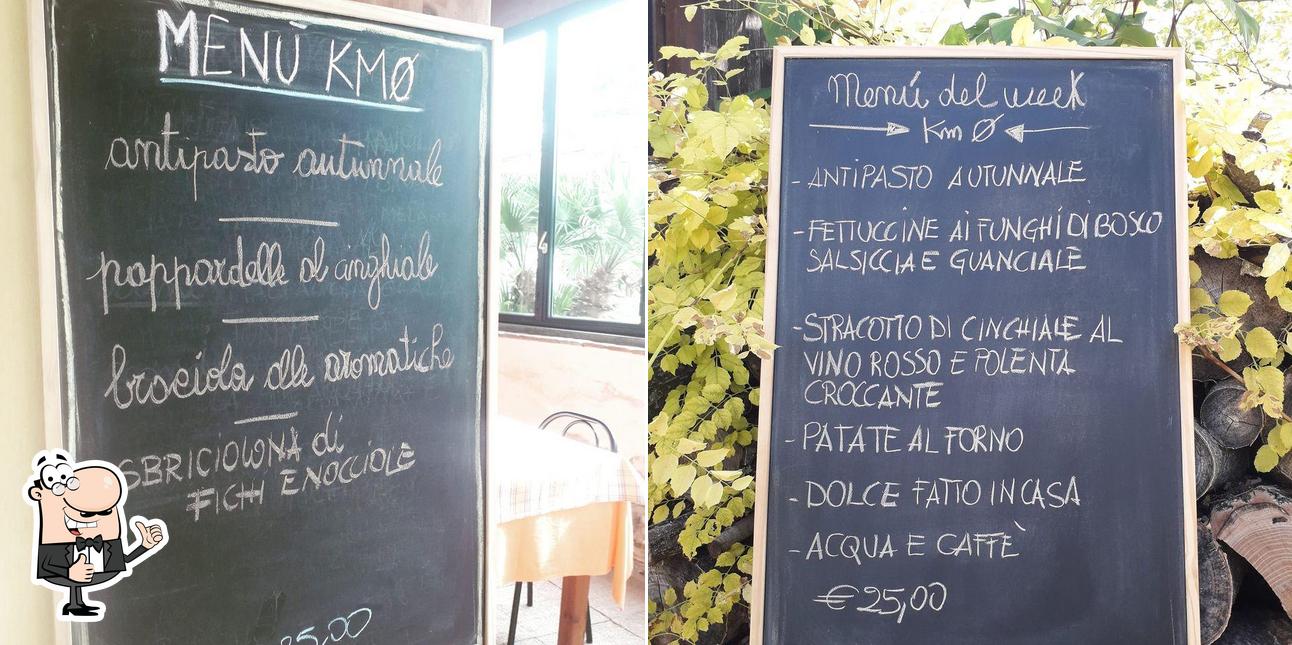 MENÙ KMØ
antipasto autunnale
pappardelle al cinghiale
braciola alle aromatiche
SBRICIOLONA di
FICHI E NOCCIOLE
25,00
Menú del week
Km Ø
- ANTIPASTO AUTUNNALE
- FETTUCCINE AI FUNGHI DI BOSCO
SALSICCIA E GUANCIALE
- STRACOTTO DI CINGHIALE AL
VINO ROSSO E POLENTA
CROCCANTE
- PATATE AL FORNO
- DOLCE FATTO IN CASA
- ACQUA E CAFFÈ
€25,00